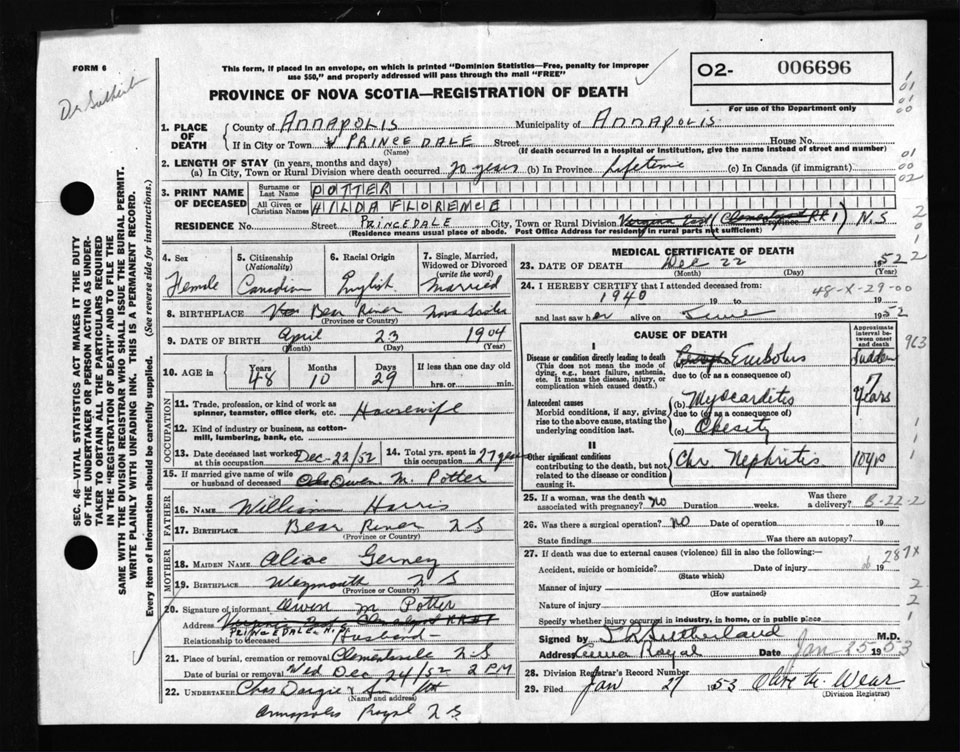 FORM 6
Dr Sutherland
This form, if placed in an envelope, on which is printed "Dominion Statistics—Free, penalty for improper
use $50," and properly addressed will pass through the mail "FREE"
PROVINCE OF NOVA SCOTIA—REGISTRATION OF DEATH
02- 006696
For use of the Department only
1. PLACE OF DEATH
County of ANNAPOLIS Municipality of ANNAPOLIS
If in City or Town PRINCE DALE Street House No.
(Name) (If death occurred in a hospital or institution, give the name instead of street and number)
2. LENGTH OF STAY (in years, months and days)
(a) In City, Town or Rural Division where death occurred 20 years (b) In Province Lifetime (c) In Canada (if immigrant)
3. PRINT NAME OF DECEASED
Surname or Last Name POTTER
All Given or Christian Names HILDA FLORENCE
RESIDENCE No. Street PRINCEDALE City, Town or Rural Division Virginia East (Clementsport RR 1) N.S
Province
(Residence means usual place of abode. Post Office Address for residency in rural parts not sufficient)
SEC. 46—VITAL STATISTICS ACT MAKES IT THE DUTY
OF THE UNDERTAKER OR PERSON ACTING AS UNDER-
TAKER TO OBTAIN ALL THE PARTICULARS REQUIRED
IN THE "REGISTRATION OF DEATH" AND TO FILE THE
SAME WITH THE DIVISION REGISTRAR WHO SHALL ISSUE THE BURIAL PERMIT.
WRITE PLAINLY WITH UNFADING INK. THIS IS A PERMANENT RECORD.
Every item of information should be carefully supplied. (See reverse side for instructions.)
4. Sex
Female
5. Citizenship
(Nationality)
Canadian
6. Racial Origin
English
7. Single, Married,
Widowed or Divorced
(write the word)
Married
8. BIRTHPLACE Bear River Nova Scotia
(Province or Country)
9. DATE OF BIRTH April 23 1904
(Month) (Day) (Year)
10. AGE in Years 48 Months 10 Days 29 If less than one day old
hrs. or min.
OCCUPATION
11. Trade, profession, or kind of work as
spinner, teamster, office clerk, etc. Housewife
12. Kind of industry or business, as cotton-
mill, lumbering, bank, etc.
13. Date deceased last worked at this occupation Dec-22/52
14. Total yrs. spent in this occupation 27 years
15. If married give name of wife
or husband of deceased Owen M. Potter
FATHER
16. Name William Harris
17. Birthplace Bear River N S
(Province or Country)
MOTHER
18. Maiden Name Alice Gerney
19. Birthplace Weymouth N S
(Province or Country)
20. Signature of informant Owen M Potter
Address Virginia East Clementsport RR #1
PRINCEDALE
Relationship to deceased Husband
21. Place of burial, cremation or removal Clementsvale N S
Date of burial or removal Wed Dec 24/52 2 PM
22. Undertaker Chas Dargie & Son
(Name and address)
Annapolis Royal N S
MEDICAL CERTIFICATE OF DEATH
23. DATE OF DEATH Dec 22 1952
(Month) (Day) (Year)
24. I HEREBY CERTIFY that I attended deceased from:
1940 19 to 19
48-X-29-00
and last saw her alive on June 1952
CAUSE OF DEATH
Approximate interval between onset and death
I
Disease or condition directly leading to death
(This does not mean the mode of
dying, e.g., heart failure, asthenia,
etc. It means the disease, injury, or
complication which caused death.)
Embolus Sudden
due to (or as a consequence of)
Antecedent causes
Morbid conditions, if any, giving
rise to the above cause, stating the
underlying condition last.
(b) Myocarditis 7 years
due to (or as a consequence of)
(c) Obesity
II
Other significant conditions
contributing to the death, but not
related to the disease or condition
causing it.
Chr. Nephritis 10 yrs
25. If a woman, was the death
associated with pregnancy? NO Duration weeks. Was there a delivery?
B-22-2
26. Was there a surgical operation? NO Date of operation 19
State findings Was there an autopsy?
27. If death was due to external causes (violence) fill in also the following:—
287X
Accident, suicide or homicide? Date of injury 19
(State which)
Manner of injury
(How sustained)
Nature of injury
Specify whether injury occurred in industry, in home, or in public place
Signed by Sutherland M.D.
Address Anna Royal Date Jan 25 1953
28. Division Registrar's Record Number
29. Filed Jan 27 1953 Olive M. Wear
(Division Registrar)
963